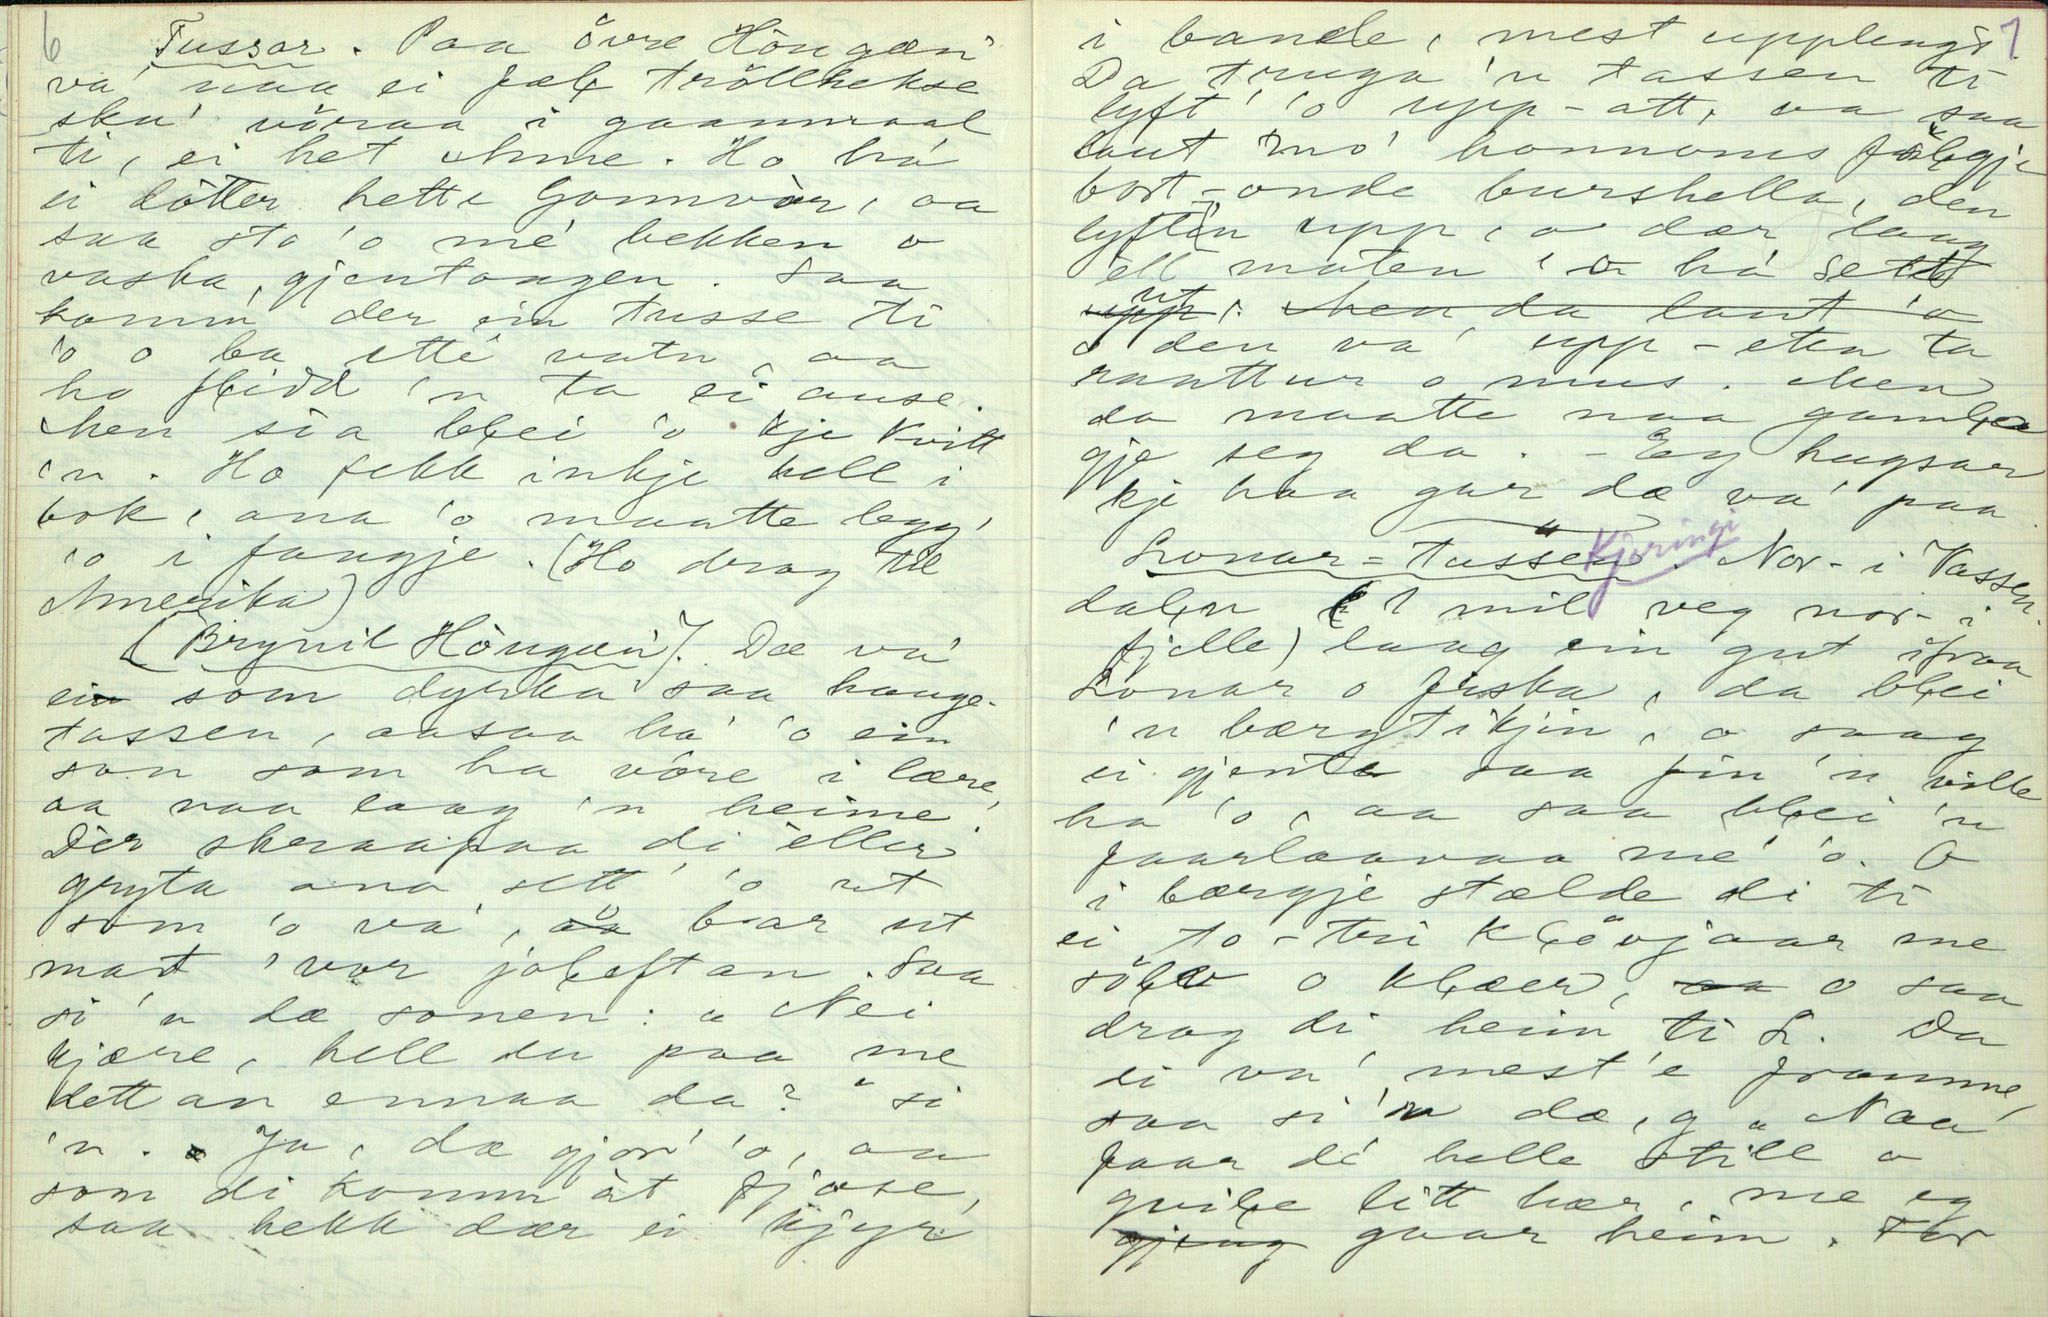 6
Tussar. Paa övre Hôugæn
va' naa ei fæl tröllhekse
sku' vöraa i gaammaal
ti, ei het Anne. Ho há
ei dôtter hette Gonnvòr, aa
saa sto 'o mé bekken o
vaska, gjentongen. Saa
komm' der ein tusse ti
'o o ba itté vatn, aa
ho flidd 'n ta ei ause.
Men sia blei 'o kje kvitt
'n. Ho fekk inkje hell i
bok, ana 'o maatte legg'
'o i fangje. (Ho drog til
Amerika)
(Brynil Hôugæn). Dæ va'
ei som dyrka saa hauge-
tassen, aasaa há 'o ein
son som ha vöre i lære,
aa naa laag 'n heime.
Dèr skraapaa di eller
gryta ana sett' 'o ut
som 'o va', o bar ut
mat 'vor jolæftan. Saa
si 'n dæ sonen: "Nei
kjære, hell du paa me
dettan ennaa da?" si
'n. Ja, dæ gjor' 'o, aa
som di komm' åt fjose,
saa hekk dær ei kjyr
7
i bande, mest upplengd.
Da truga 'n tassen ti
lyft' 'o upp-att, va saa
laut mó honnoms fölgje
bort-onde burshella, den
lyftin upp, o dær laag
all maten 'o há sett
ut upp. Men da laut 'o
o den va' upp-eten ta
raattur o mus. Men
da maatte naa gamla
gje seg da. - Eg hugsar
kje haa gar dæ va' paa.
Lonar-tussen. Kjæringi Nor-i Vassen-
dalen (1 mil veg nor-i
fjelle) laag ein gut ifraa
Lonar o fiska, da blei
'n bærgtikjin, o saag
ei gjente saa fin 'n ville
ha 'o, aa saa blei 'n
faarlaavaa mé 'o. O
i bærgje stælde di ti
ei to-tri klövjaar me
sölv o klæer, o saa
drog di heim ti L. Da
ei va' mest'e framme,
saa si 'n dæ, g "Naa
faar dé helle still o
qvile litt hær, me eg
gjeng gaar heim. For